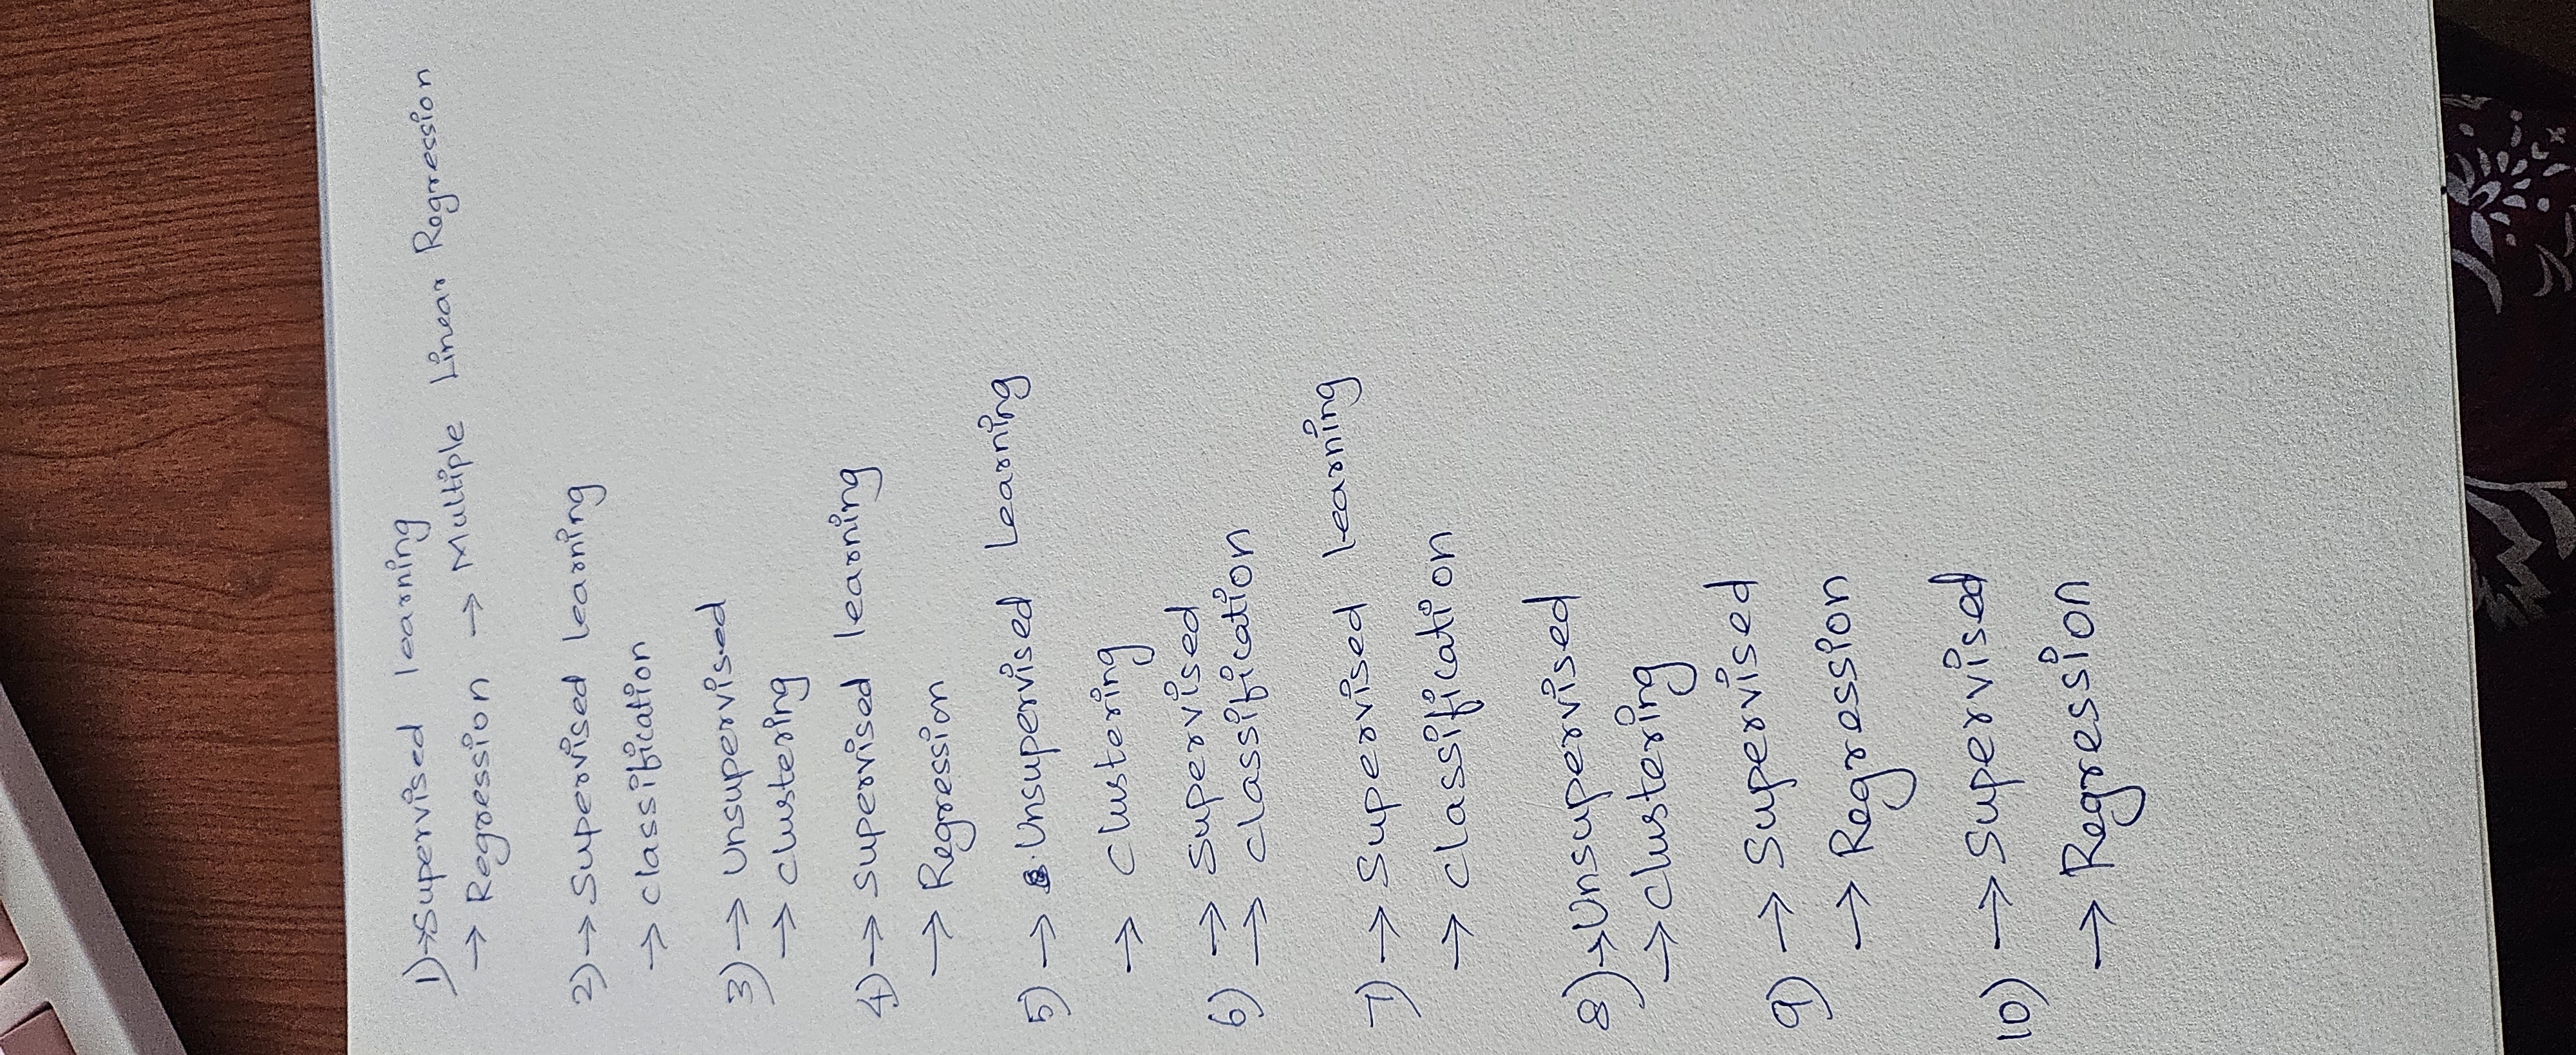 1)→Supervised learning
→ Regression → Multiple Linear Regression
2)→ Supervised learning
→ classification
3)→ Unsupervised
→ clustering
4)→ supervised learning
→ Regression
5) → Unsupervised Learning
→ Clustering
6) → Supervised
→ classification
7)→ Supervised learning
→ classification
8)→Unsupervised
→ clustering
9) → Supervised
→ Regression
10) → Supervised
→ Regression